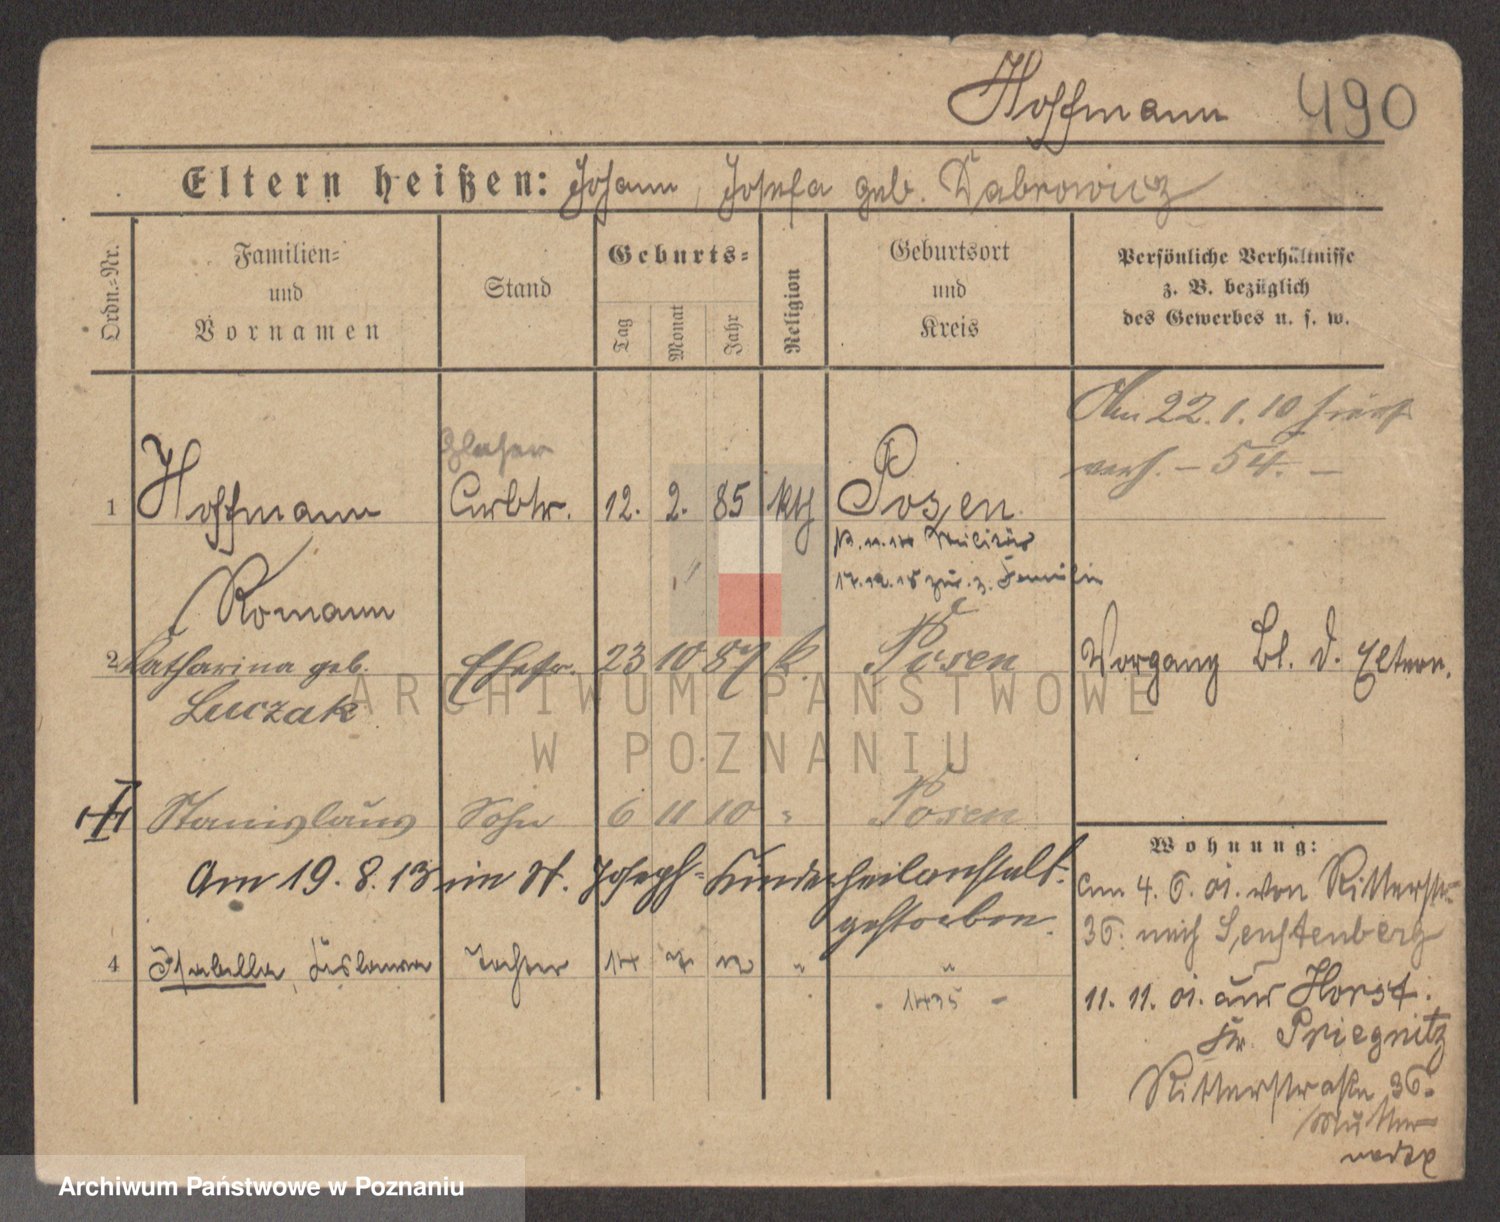 Hoffmann 490
Eltern heißen: Johann, Josefa geb. Dabrowicz
Ordn.-Nr.
Familien=
und
Vornamen
Stand
Geburts=
Tag
Monat
Jahr
Religion
Geburtsort
und
Kreis
Persönliche Verhältnisse
z. B. bezüglich
des Gewerbes u. s. w.
Am 22.1.10 hier
verh. – 54. –
Glaser
1 Hoffmann Arbtr. 12. 2. 85 kth Posen
Militär
17.12.18 zur. z. Familie
Romann
2 Katharina geb. Ehefr. 23 10 87 k. Posen
Luczak
Vorgang Bl. d. Eltern.
Stanislaus Sohn 6 11 10 " Posen
Am 19.8.13 im St. Joseph-Kinderheilanstalt
gestorben.
4 Isabella, Tochter 14 7 12 " "
- 1435 -
Wohnung:
Am 4.6.01. von Ritterstr.
36. nach Senftenberg
11.11.01. aus Horst.
Kr. Priegnitz
Ritterstraße 36.
Mutter
ARCHIWUM PAŃSTWOWE
W POZNANIU
Archiwum Państwowe w Poznaniu